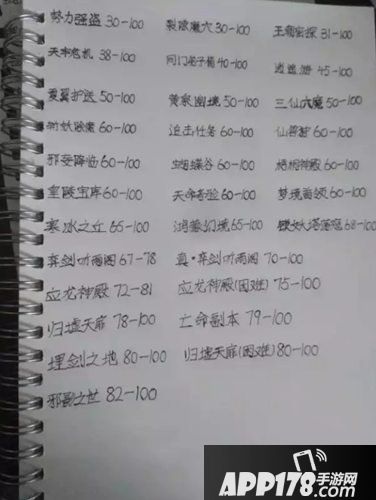 努力强盗 30-100 裂隙魔穴 30-100 王朝密探 31-100
天牢危机 38-100 同门名子蜀 40-100 逍遥游 45-100
灵翼护送 50-100 黄泉幽境 50-100 三仙六魔 50-100
斩妖除魔 60-100 追击任务 60-100 仙兽谷 60-100
邪妄降临 60-100 蝴蝶谷 60-100 梧桐神殿 60-100
皇陵宝库 60-100 天命考验 60-100 梦境首领 60-100
寒冰之丘 65-100 鸿蒙幻境 65-100 塔荡寇 68-100
弈剑听雨阁 67-78 真·弈剑听雨阁 70-100
应龙神殿 72-81 应龙神殿(困难) 75-100
归墟天扉 78-100 亡命副本 79-100
埋剑之地 80-100 归墟天扉(困难) 80-100
邪影之世 82-100
APP178手游网